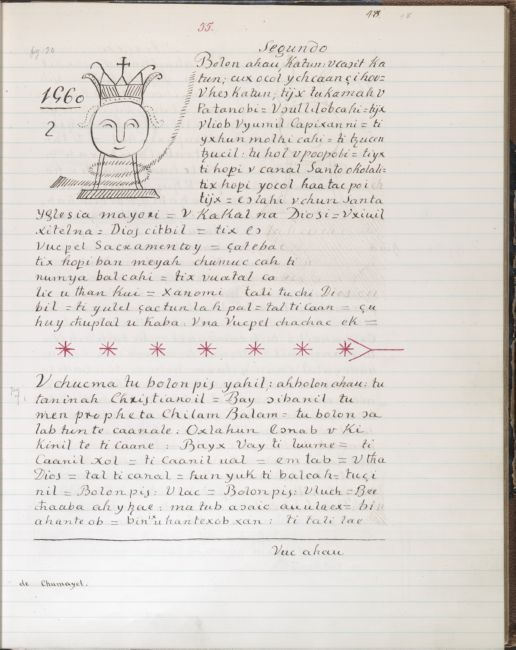 55.
48
Segundo
1560
2
Bolon ahau Katun: vcasit ka
tun; cux ocol ychcaan çi hoo=
vhes Katun; tijx tu kamah v
Patanobi= Vsullilobcahi=tijx
vliob Vyumil Capixanni= ti
yxhun molhi cahi= ti tzucen
tzucil: tu hol v popobi= tiyx
ti hopi v canal Santo okolal=
tix hopi yocol haatac poi
tijx= colahi vchun Santa
Yglesia mayori = V KaKal na Diosi= vxiuil
xitelna= Dios citbil = tix
vucpel Sacramentoy = çatebac
tix hopi ban meyah chumuc cah ti
numya balcahi = tix vuatal ca
lic u than kui = xanomi tali tuchi Dios
bil = ti yulel çac tun lah pal= tal ti caan = çu
huy chuplal u kaba: Vna Vucpel chachac ek =
V chucma tu bolon pis yahil: ahbolon ahau: tu
taninah Christianoil = Bay ɔibanil tu
men propheta Chilam Balam= tu bolon ɔa
lab tun te caanale: Oxlahun Cɔnab v Ki
Kinil te ti Caane: Bayx Vay ti luume= ti
Caanil xol = ti Caanil ual = em tab = V tha
Dios = tal ti canal = hun yuk ti balcah= tuçi
nil = Bolonpis: Vlac = Bolonpis: Vluch= Bee
chaaba ah ytzae: ma tub aɔaic auulaex= bin
ahanteob = bin ix uhantexob xan: ti tali lae
Vuc ahau
de Chumayel.